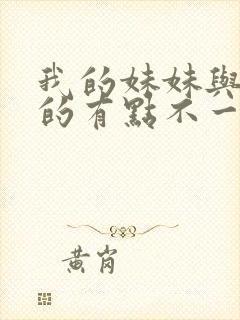 我的妹妹與
的有點不一
黃岗